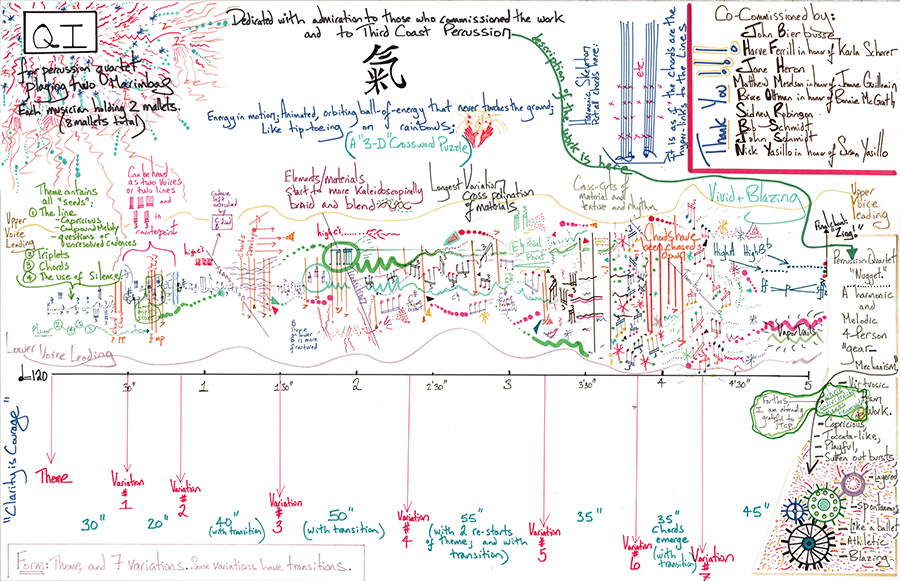 QI
for percussion quartet
playing two 5 Octave Marimbas
Each musician holding 2 mallets.
(8 mallets total)
Dedicated with admiration to those who commissioned the work
and to Third Coast Percussion
氣
Energy in motion; Animated, orbiting ball-of-energy that never touches the ground;
Like tip-toeing on rainbows;
(A "3-D" Crossword Puzzle)
description of the work is here
Harmonic Skeleton
Petal chords here:
etc.
It is as if the chords are the
hyper-links to the Lines
Thank You!!!
Co-Commissioned by:
John Bierbusse
Harve Ferrill in honor of Karla Scherer
Jane Heron
Matthew Meselson in honor of Jeanne Guillemin
Bruce Oltman in honor of Bonnie McGrath
Sidney Robinson
Bob Schmidt
John Schmidt
Nick Yasillo in honor of Susan Yasillo
Theme contains
all "seeds".
① The line
- Capricious
- Compound Melody
- questions or
unresolved cadences
② Triplets
③ Chords
④ The use of Silence
Upper
Voice
Leading
Can be heard
as two voices
or two lines
and
in
counterpoint
Elements/materials
start to more kaleidoscopically
braid and blend
Longest Variation
Cross pollination
of materials
Vivid + Blazing
Upper
Voice
leading
higher
higher
Chords have
been chased
down
High! High
Final chord:
"Zing"
Vapor trails
Lower Voice Leading
Percussion Quartet
"Nugget"
A harmonic
and
Melodic
4-Person
"gear-
Mechanism"
♩=120
30"
1
2
2'30"
3
3'30"
4
4'30"
5
"Clarity is Courage"
Theme
Variation
# 1
Variation
# 2
Variation
# 3
Variation
# 4
Variation
# 5
Variation
# 6
Variation
# 7
30"
20"
40"
(with transition)
50"
(with transition)
55"
(with 2 re-starts
of Theme; and with
transition)
35"
35"
Chords
emerge
(with
transition)
45"
For this
I am eternally
grateful to
TCP
- Virtuosic
Team
Work.
- Capricious,
- Toccata-like,
- Playful,
- Sudden outbursts
- Layered
- Spontaneous
- like a ballet
- Athletic
- Blazing
Form: Theme and 7 variations. Some variations have transitions.